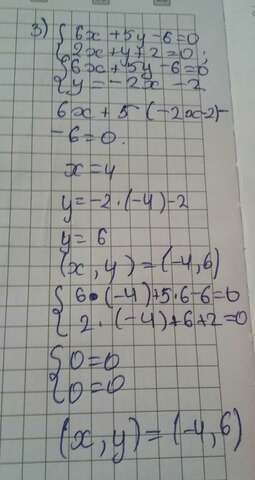 3) {6x+5y-6=0
{2x+y+2=0;
{6x+5y-6=0
{y=-2x-2
6x+5(-2x-2)-
-6=0.
x=4
y=-2·(-4)-2
y=6
(x,y)=(-4,6)
{6·(-4)+5·6-6=0
{2·(-4)+6+2=0
{0=0
{0=0
(x,y)=(-4,6)